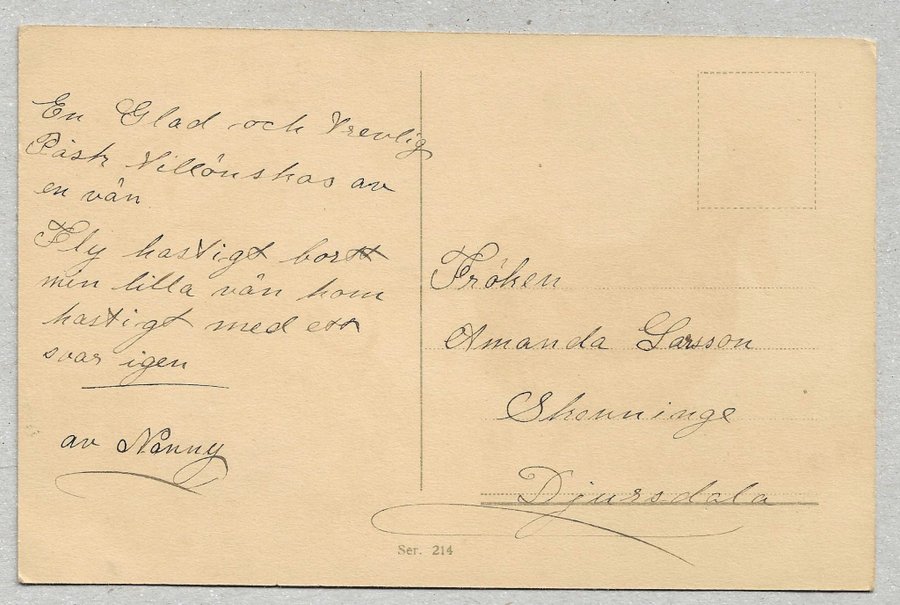 En Glad och Trevlig
Påsk Tillönskas av
en vän
Fly hastigt bortt
min lilla vän kom
hastigt med ett
svar igen
av Nanny
Fröken
Amanda Larsson
Skenninge
Djursdala
Ser. 214